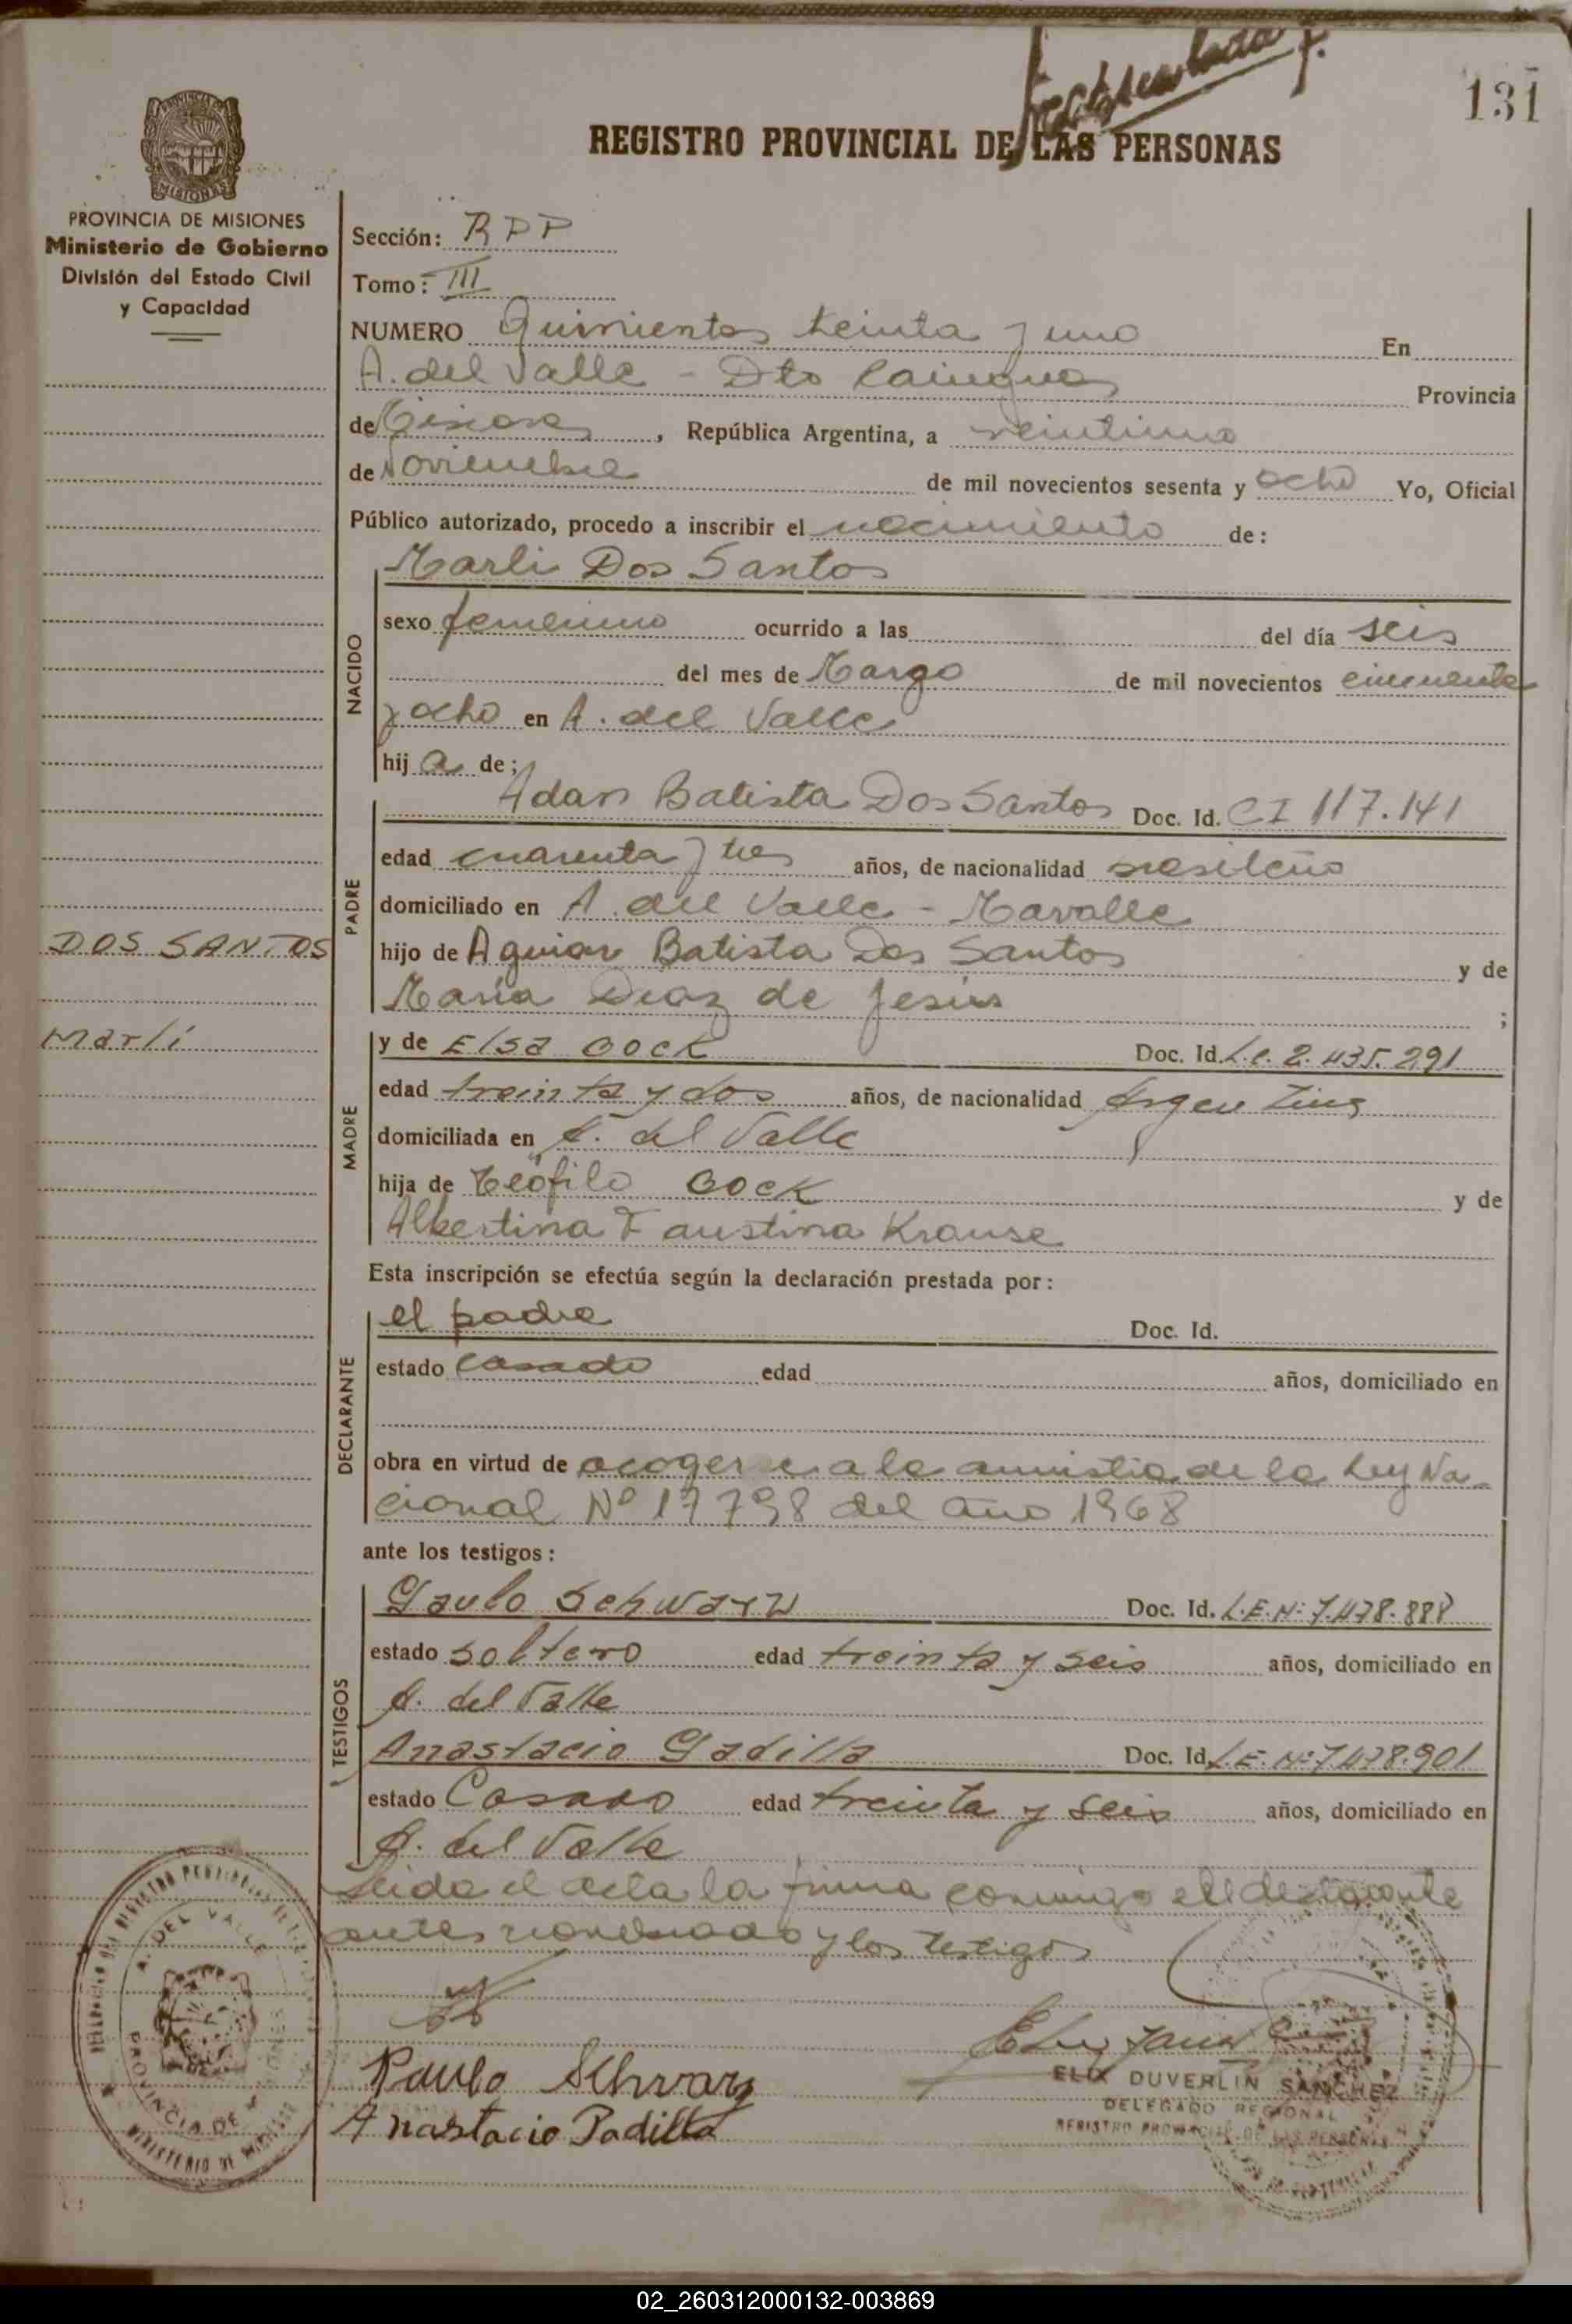 131
REGISTRO PROVINCIAL DE LAS PERSONAS
PROVINCIA DE MISIONES
Ministerio de Gobierno
División del Estado Civil
y Capacidad
Sección: RPP
Tomo: III
NUMERO Quinientos treinta y uno En
A. del Valle - Dto Cainguas Provincia
de Misiones, República Argentina, a veintiuno
de Noviembre de mil novecientos sesenta y ocho Yo, Oficial
Público autorizado, procedo a inscribir el nacimiento de:
NACIDO
Marli Dos Santos
sexo femenino ocurrido a las del día seis
del mes de Marzo de mil novecientos cincuenta
y ocho en A. del Valle
hija de:
PADRE
Adan Batista Dos Santos Doc. Id. CI 117.141
edad cuarenta y tres años, de nacionalidad brasileño
domiciliado en A. del Valle - Mavalle
DOS SANTOS
hijo de Aguiar Batista Dos Santos y de
María Diaz de Jesús ;
Marlí
MADRE
y de Elsa Bock Doc. Id. L.C. 2.435.291
edad treinta y dos años, de nacionalidad Argentina
domiciliada en A. del Valle
hija de Teófilo Bock y de
Albertina Faustina Krause
Esta inscripción se efectúa según la declaración prestada por:
DECLARANTE
el padre Doc. Id.
estado casado edad años, domiciliado en
obra en virtud de acogerse a la amnistia de la Ley Na-
cional Nº 17798 del año 1968
ante los testigos:
TESTIGOS
Paulo Schwarz Doc. Id. L.E. Nº 7.478.888
estado soltero edad treinta y seis años, domiciliado en
A. del Valle
Anastacio Padilla Doc. Id. L.E. Nº 7.478.901
estado Casado edad treinta y seis años, domiciliado en
A. del Valle
Leida el acta la firma conmigo el declarante
antes nombrado y los testigos
Paulo Schvarz
Anastacio Padilla
ELIX DUVERLIN SANCHEZ
DELEGADO REGIONAL
REGISTRO PROVINCIAL DE LAS PERSONAS
A. DEL VALLE
PROVINCIA DE MISIONES
02_260312000132-003869